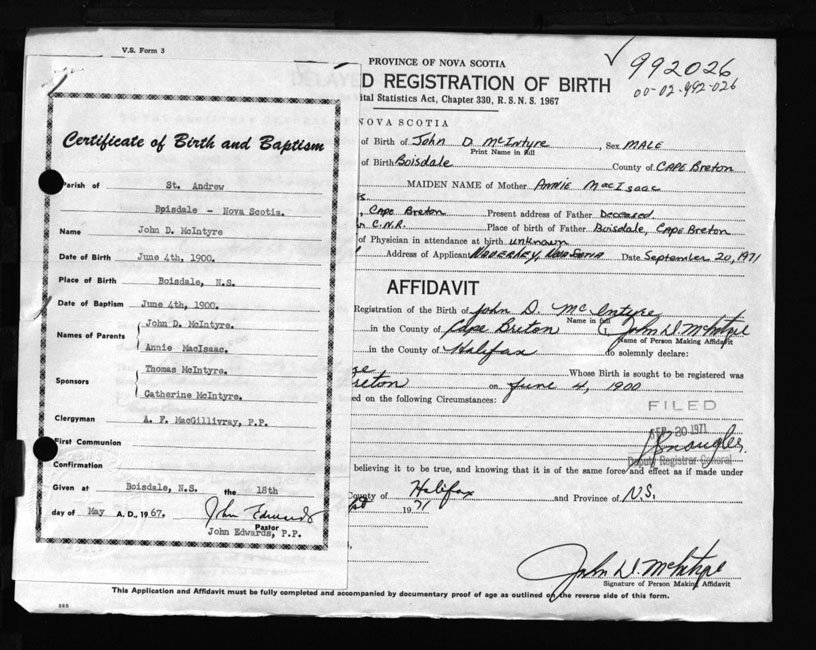 V.S. Form 3
Certificate of Birth and Baptism
Parish of St. Andrew
Bpisdale - Nova Scotis.
Name John D. McIntyre
Date of Birth June 4th, 1900.
Place of Birth Boisdale, N.S.
Date of Baptism June 4th, 1900.
Names of Parents John D. McIntyre.
Annie MacIsaac.
Sponsors Thomas McIntyre.
Catherine McIntyre.
Clergyman A. F. MacGillivray, P.P.
First Communion
Confirmation
Given at Boisdale, N.S. the 18th
day of May A. D., 1967. John Edwards
Pastor
John Edwards, P.P.
PROVINCE OF NOVA SCOTIA
D REGISTRATION OF BIRTH
ital Statistics Act, Chapter 330, R. S. N. S. 1967
992026
00-02-992-026
NOVA SCOTIA
of Birth of John D. McIntyre, Sex MALE
Print Name in full
of Birth Boisdale County of CAPE Breton
MAIDEN NAME of Mother ANNIE MacIsaac
s.
, Cape Breton Present address of Father Deceased
C.N.R. Place of birth of Father Boisdale, Cape Breton
of Physician in attendance at birth unknown
Address of Applicant Nova Scotia Date September 20, 1971
AFFIDAVIT
Registration of the Birth of John D. McIntyre
Name in full
in the County of Cape Breton John D. McIntyre
Name of Person Making Affidavit
in the County of Halifax do solemnly declare:
Whose Birth is sought to be registered was
reton on June 4, 1900
ed on the following Circumstances:
FILED
SEP 20 1971
Deputy Registrar General
believing it to be true, and knowing that it is of the same force and effect as if made under
County of Halifax and Province of N.S.
1971
John D. McIntyre
Signature of Person Making Affidavit
This Application and Affidavit must be fully completed and accompanied by documentary proof of age as outlined on the reverse side of this form.